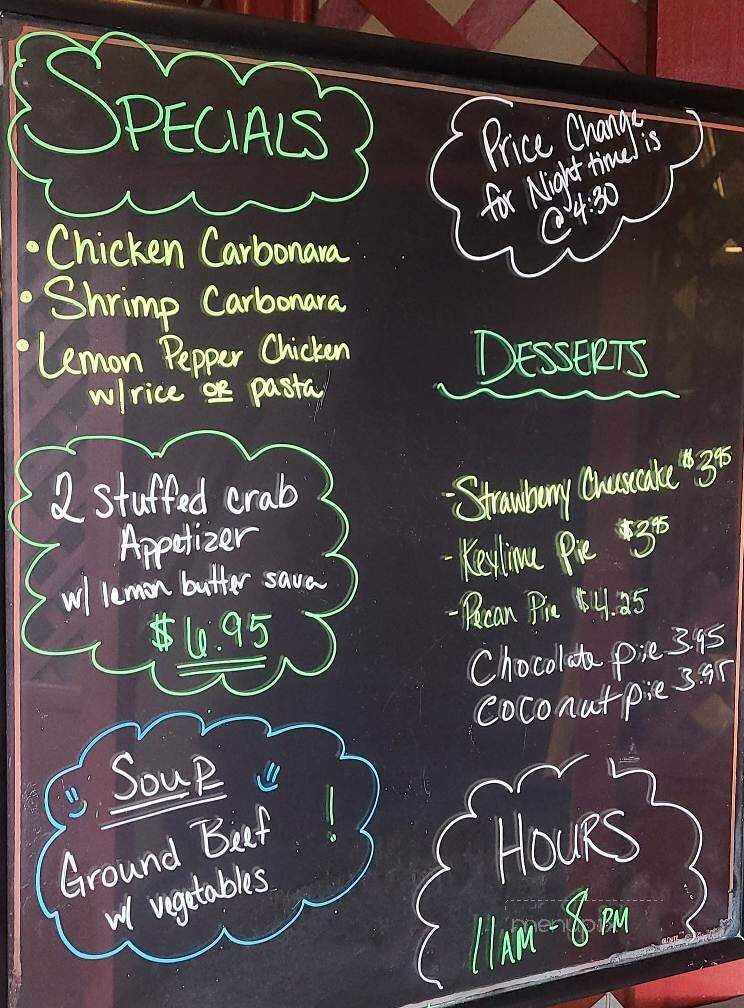 SPECIALS
• Chicken Carbonara
• Shrimp Carbonara
• Lemon Pepper Chicken
w/rice OR pasta
2 stuffed crab
Appetizer
w/ lemon butter
$6.95
Soup
Ground Beef !
w/ vegetables
Price Change
for Night time is
@ 4:30
DESSERTS
- Strawberry Cheesecake $3.95
- Keylime Pie $3.95
- Pecan Pie $4.25
Chocolate pie 3.95
coconut pie 3.95
HOURS
11AM - 8PM
menupix